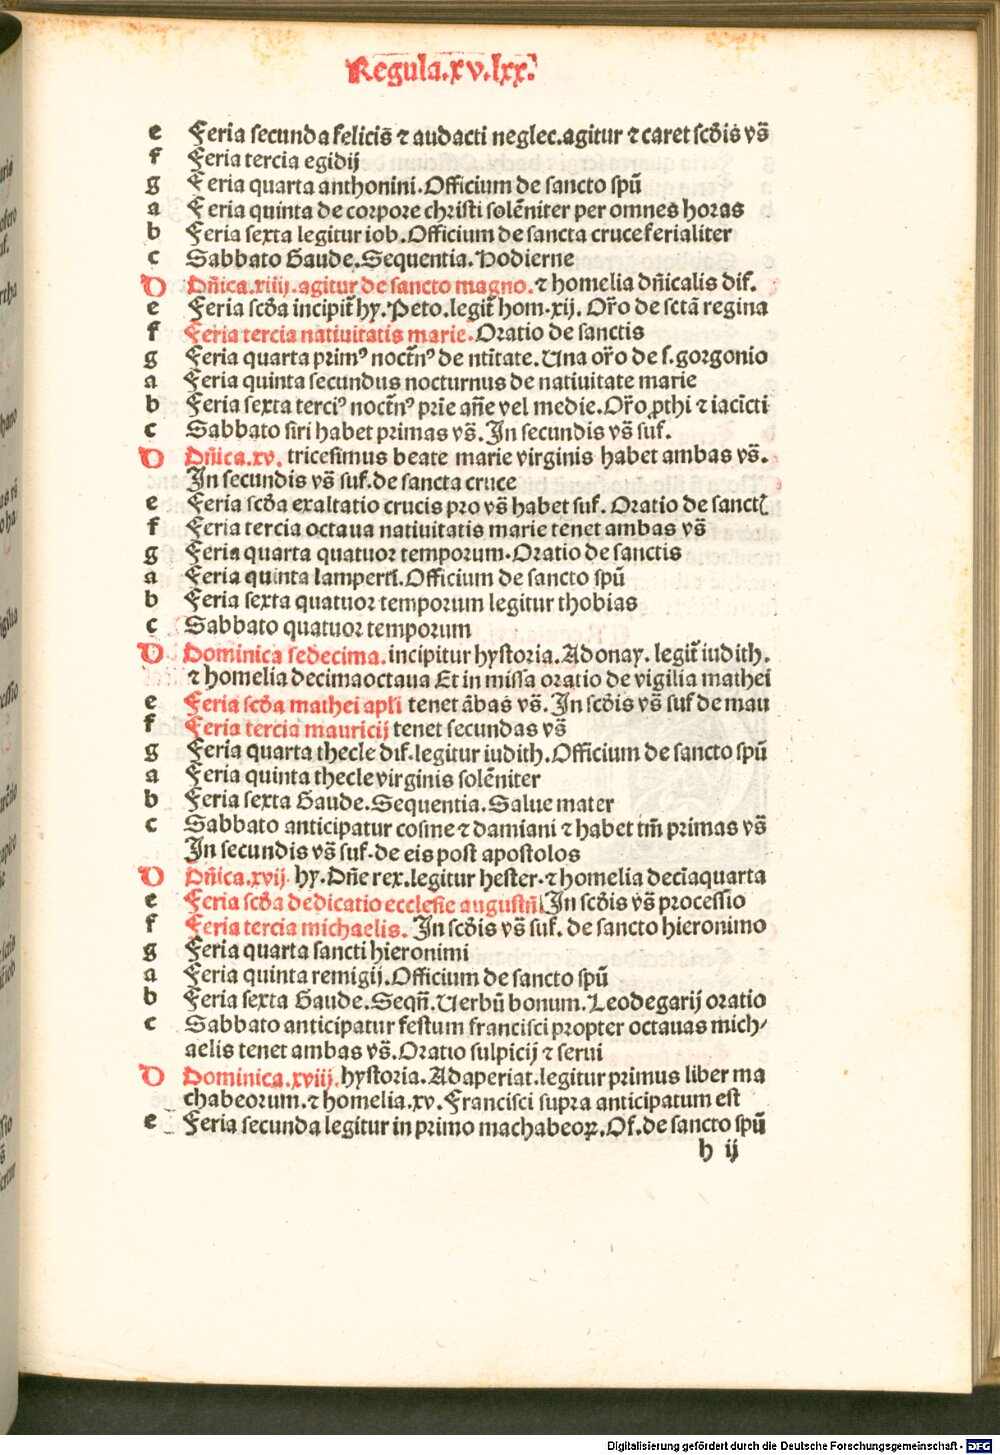 Regula.xv.lxx.
e Feria secunda felicis̄ ⁊ audacti neglec.agitur ⁊ caret sc̄dis vs̄
f Feria tercia egidij
g Feria quarta anthonini.Officium de sancto spū
a Feria quinta de corpore christi solēniter per omnes horas
b Feria sexta legitur iob.Officium de sancta cruce ferialiter
c Sabbato Gaude.Sequentia.Hodierne
D Dn̄ica.xiiij.agitur de sancto magno.⁊ homelia dn̄icalis dif.
e Feria sc̄da incipit̄ hy.Peto.legit̄ hom.xij. Or̄o de sctā regina
f Feria tercia natiuitatis marie.Oratio de sanctis
g Feria quarta primꝰ noct̄nꝰ de ntītate.Una or̄o de s.gorgonio
a Feria quinta secundus nocturnus de natiuitate marie
b Feria sexta terciꝰ noct̄nꝰ prīe an̄e vel medie.Or̄o ꝓthi ⁊ iacīcti
c Sabbato siri habet primas vs̄.In secundis vs̄ suf.
D Dn̄ica.xv. tricesimus beate marie virginis habet ambas vs̄.
In secundis vs̄ suf.de sancta cruce
e Feria sc̄da exaltatio crucis pro vs̄ habet suf. Oratio de sanctꝭ
f Feria tercia octaua natiuitatis marie tēnet ambas vs̄
g Feria quarta quatuor temporum.Oratio de sanctis
a Feria quinta lamperti.Officium de sancto spū
b Feria sexta quatuor temporum legitur thobias
c Sabbato quatuor temporum
D Dominica sedecima.incipitur hystoria.Adonay.legit̄ iudith.
⁊ homelia decimaoctaua Et in missa oratio de vigilia mathei
e Feria sc̄da mathei apl̄i tenet ābas vs̄.In sc̄dis vs̄ suf de mau
f Feria tercia mauricij tenet secundas vs̄
g Feria quarta thecle dif.legitur iudith.Officium de sancto spū
a Feria quinta thecle virginis solēniter
b Feria sexta Gaude.Sequentia.Salue mater
c Sabbato anticipatur cosme ⁊ damiani ⁊ habet tm̄ primas vs̄
In secundis vs̄ suf.de eis post apostolos
D Dn̄ica.xvij. hy.Dn̄e rex.legitur hester.⁊ homelia decīaquarta
e Feria sc̄da dedicatio ecclesie augustn̄.In sc̄dis vs̄ processio
f Feria tercia michaelis. In sc̄dis vs̄ suf. de sancto hieronimo
g Feria quarta sancti hieronimi
a Feria quinta remigij.Officium de sancto spū
b Feria sexta Gaude.Seqn̄.Uerbū bonum.Leodegarij oratio
c Sabbato anticipatur festum francisci propter octauas mich⸗
aelis tenet ambas vs̄.Oratio sulpicij ⁊ serui
D Dominica.xviij.hystoria.Adaperiat.legitur primus liber ma
chabeorum.⁊ homelia.xv.Francisci supra anticipatum est
e Feria secunda legitur in primo machabeoꝝ.Of.de sancto spū
h ij
Digitalisierung gefördert durch die Deutsche Forschungsgemeinschaft - DFG